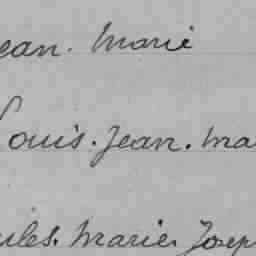 ean. Marie
Louis. Jean. Ma
ules. Marie. Josep